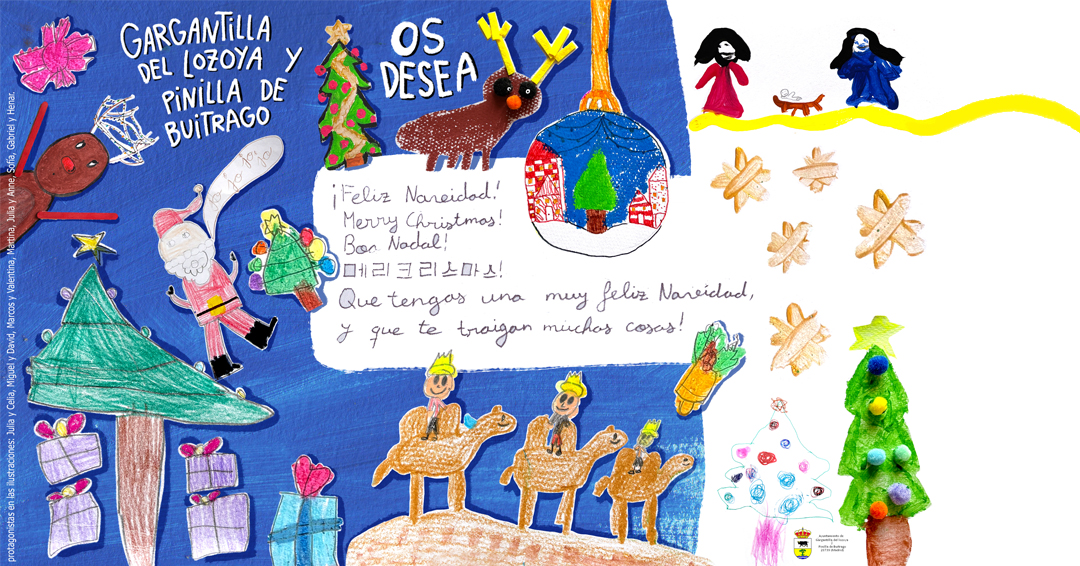 GARGANTILLA
DEL LOZOYA Y
PINILLA DE
BUITRAGO
OS
DESEA
jo jo jo
¡Feliz Naveidad!
Merry Christmas!
Bon Nadal!
메리크리스마스!
Que tengas una muy feliz Naveidad,
y que te traigan muchas cosas!
protagonistas en las ilustraciones: Julia y Celia, Miguel y David, Marcos y Valentina, Martina, Julia y Anne, Sofía, Gabriel y Henar.
Ayuntamiento de
Gargantilla del Lozoya
y
Pinilla de Buitrago